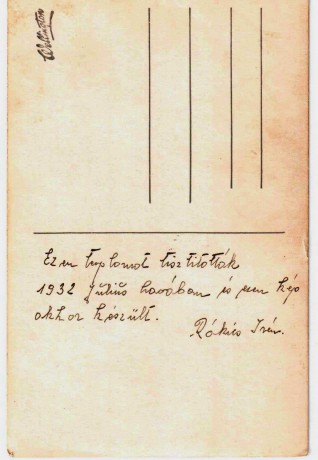 Wellington
Ezen templomot tisztították
1932 Július havában és ezen kép
akkor készült.
Rákics Iván.